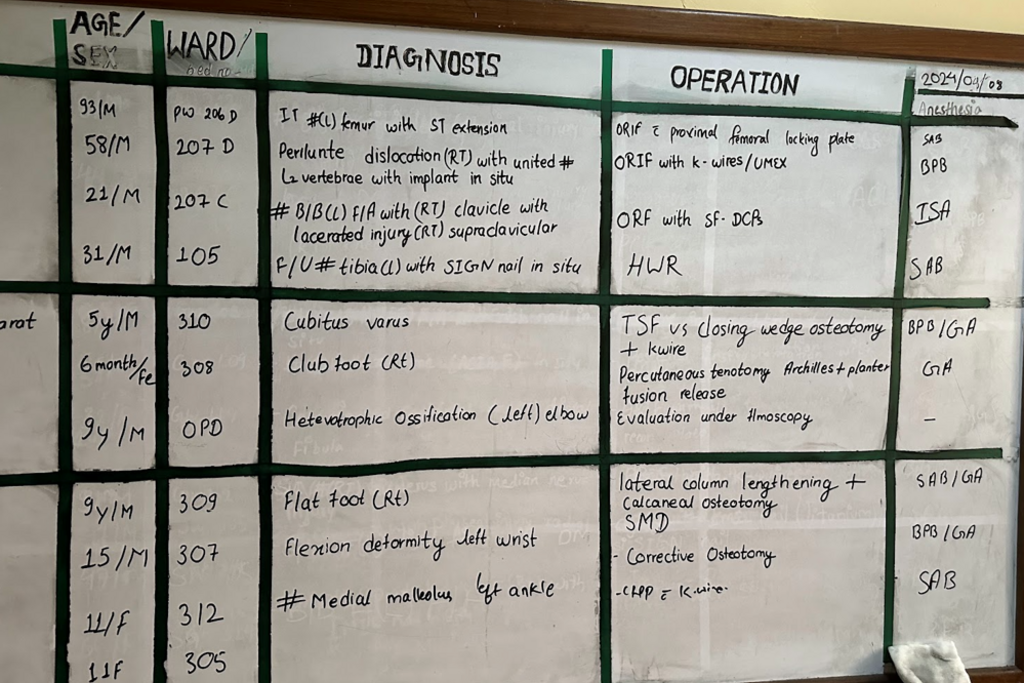 AGE/ WARD/ DIAGNOSIS OPERATION 2024/09/08
SEX bed no. Anesthesia
93/M PW 206 D IT #(L) femur with ST extension ORIF c̄ proximal femoral locking plate SAB
58/M 207 D Perilunte dislocation (RT) with united # ORIF with k-wires/UMEX BPB
L2 vertebrae with implant in situ
21/M 207 C # B/B(L) F/A with (RT) clavicle with ORF with SF-DCPs ISA
lacerated injury (RT) supraclavicular
31/M 105 F/U # tibia (L) with SIGN nail in situ HWR SAB
arat 5y/M 310 Cubitus varus TSF vs closing wedge osteotomy BPB/GA
+ kwire
6 month/Fe 308 Club foot (Rt) Percutaneous tenotomy Archilles + planter GA
fusion release
9y/M OPD Hetevotrophic Ossification (left) elbow Evaluation under flmoscopy -
9y/M 309 Flat foot (Rt) lateral column lengthening + SAB/GA
Calcaneal osteotomy
SMD
15/M 307 Flexion deformity left wrist - Corrective Osteotomy BPB/GA
11/F 312 # Medial malleolus left ankle - CRPP c̄ K.wire. SAB
11F 305